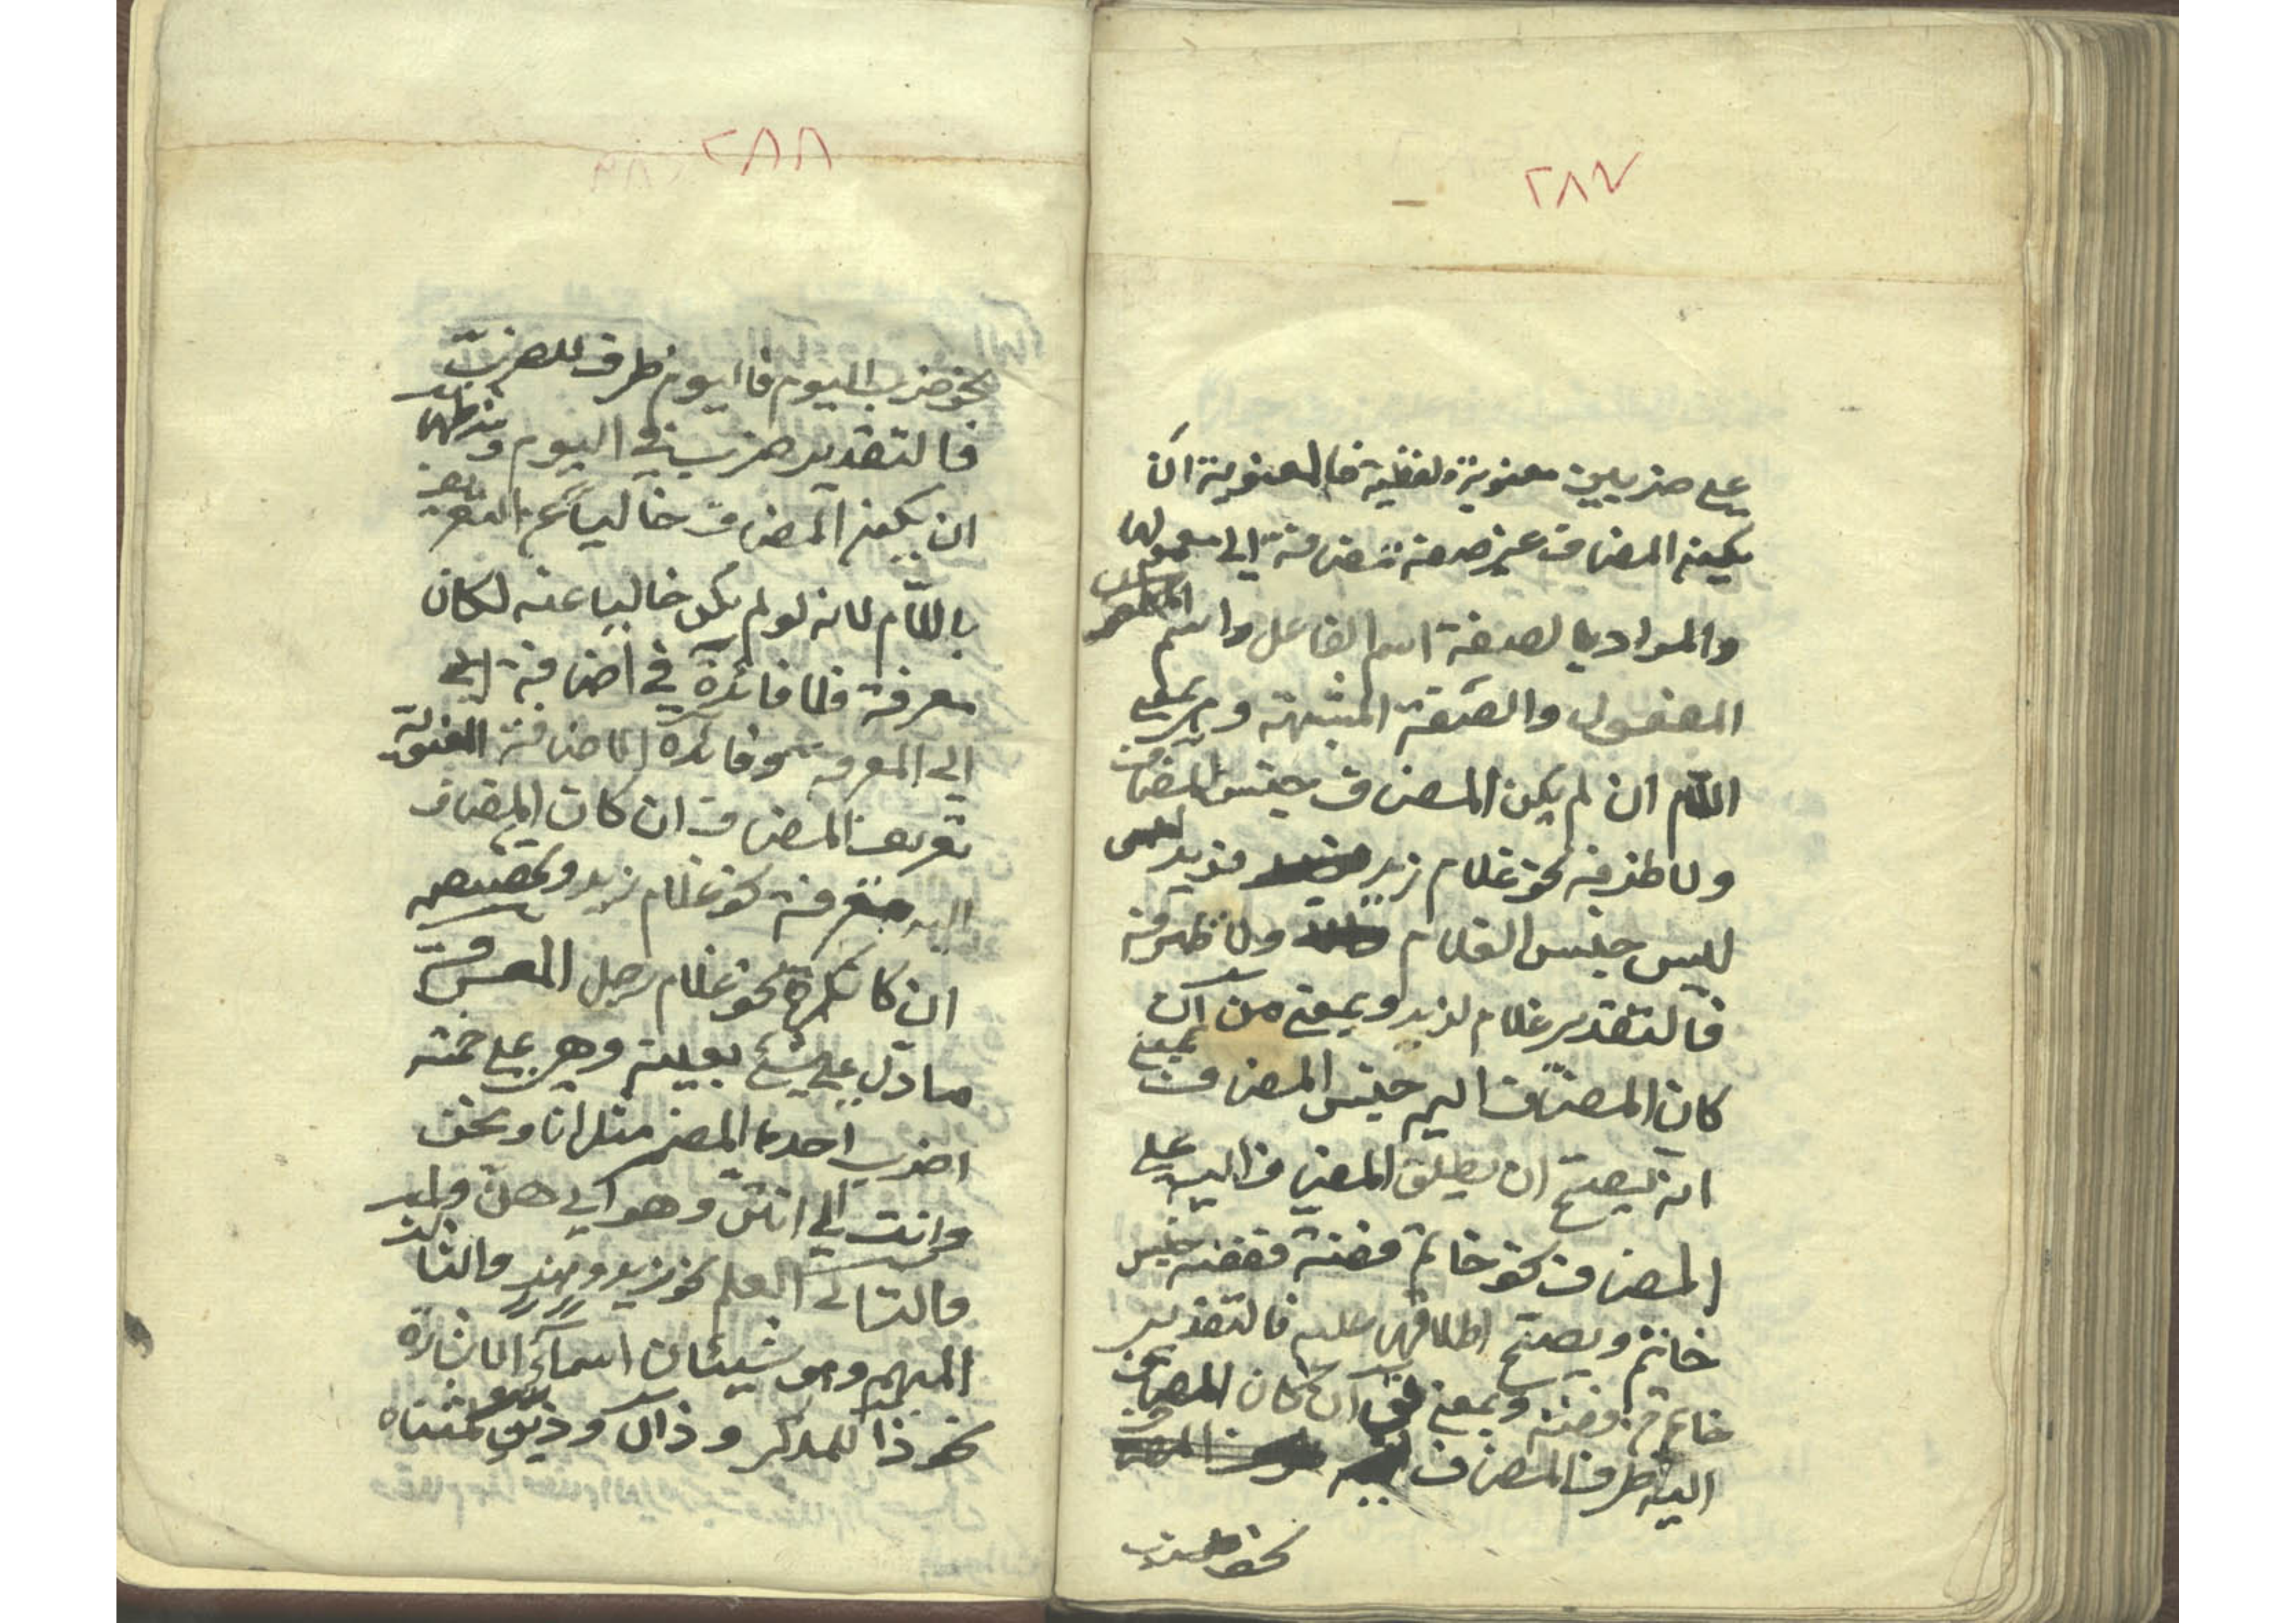 ٢٨٧
على ضربين معنوية ولفظية فالمعنوية ان
يكون المضاف غير صفة مضافة الى معمولها
والمراد بالصفة اسم الفاعل واسم
المفعول والصفة المشبهة وهى بمعنى
اللام ان لم يكن المضاف جنس المضاف
ولا ظرفه نحو غلام زيد فزيد
ليس جنس الغلام ولا ظرفه
فالتقدير غلام لزيد وبمعنى من ان
كان المضاف اليه جنس المضاف بمعنى
انه يصح ان يطلق المضاف اليه على
المضاف نحو خاتم فضة ففضة جنس
خاتم ويصح اطلاقها عليه فالتقدير
خاتم من فضة وبمعنى فى ان كان المضاف
اليه ظرف المضاف
نحو ضرب
٢٨٨
نحو ضرب اليوم فاليوم ظرف للضرب
فالتقدير ضرب فى اليوم وشرطها
ان يكون المضاف خاليا عن التعريف
باللام لانه لو لم يكن خاليا عنه لكان
معرفة فلا فائدة في اضافة الى
الى المعرفة وفائدة الاضافة المعنوية
تعريف المضاف ان كان المضاف
اليه معرفة نحو غلام زيد وتخصيصه
ان كا نكرة نحو غلام رجل المعرفة
ما دل على شئ بعينه وهى على خمسة
اضرب احدها المضمر مثل انا ونحن
وانت الى انتن وهو الى هن
والثانى العلم نحو زيد وهند والثالث
المبهم وهو شيئان اسماء الاشارة
نحو ذا للمذكر و ذان و ذين لمثناه